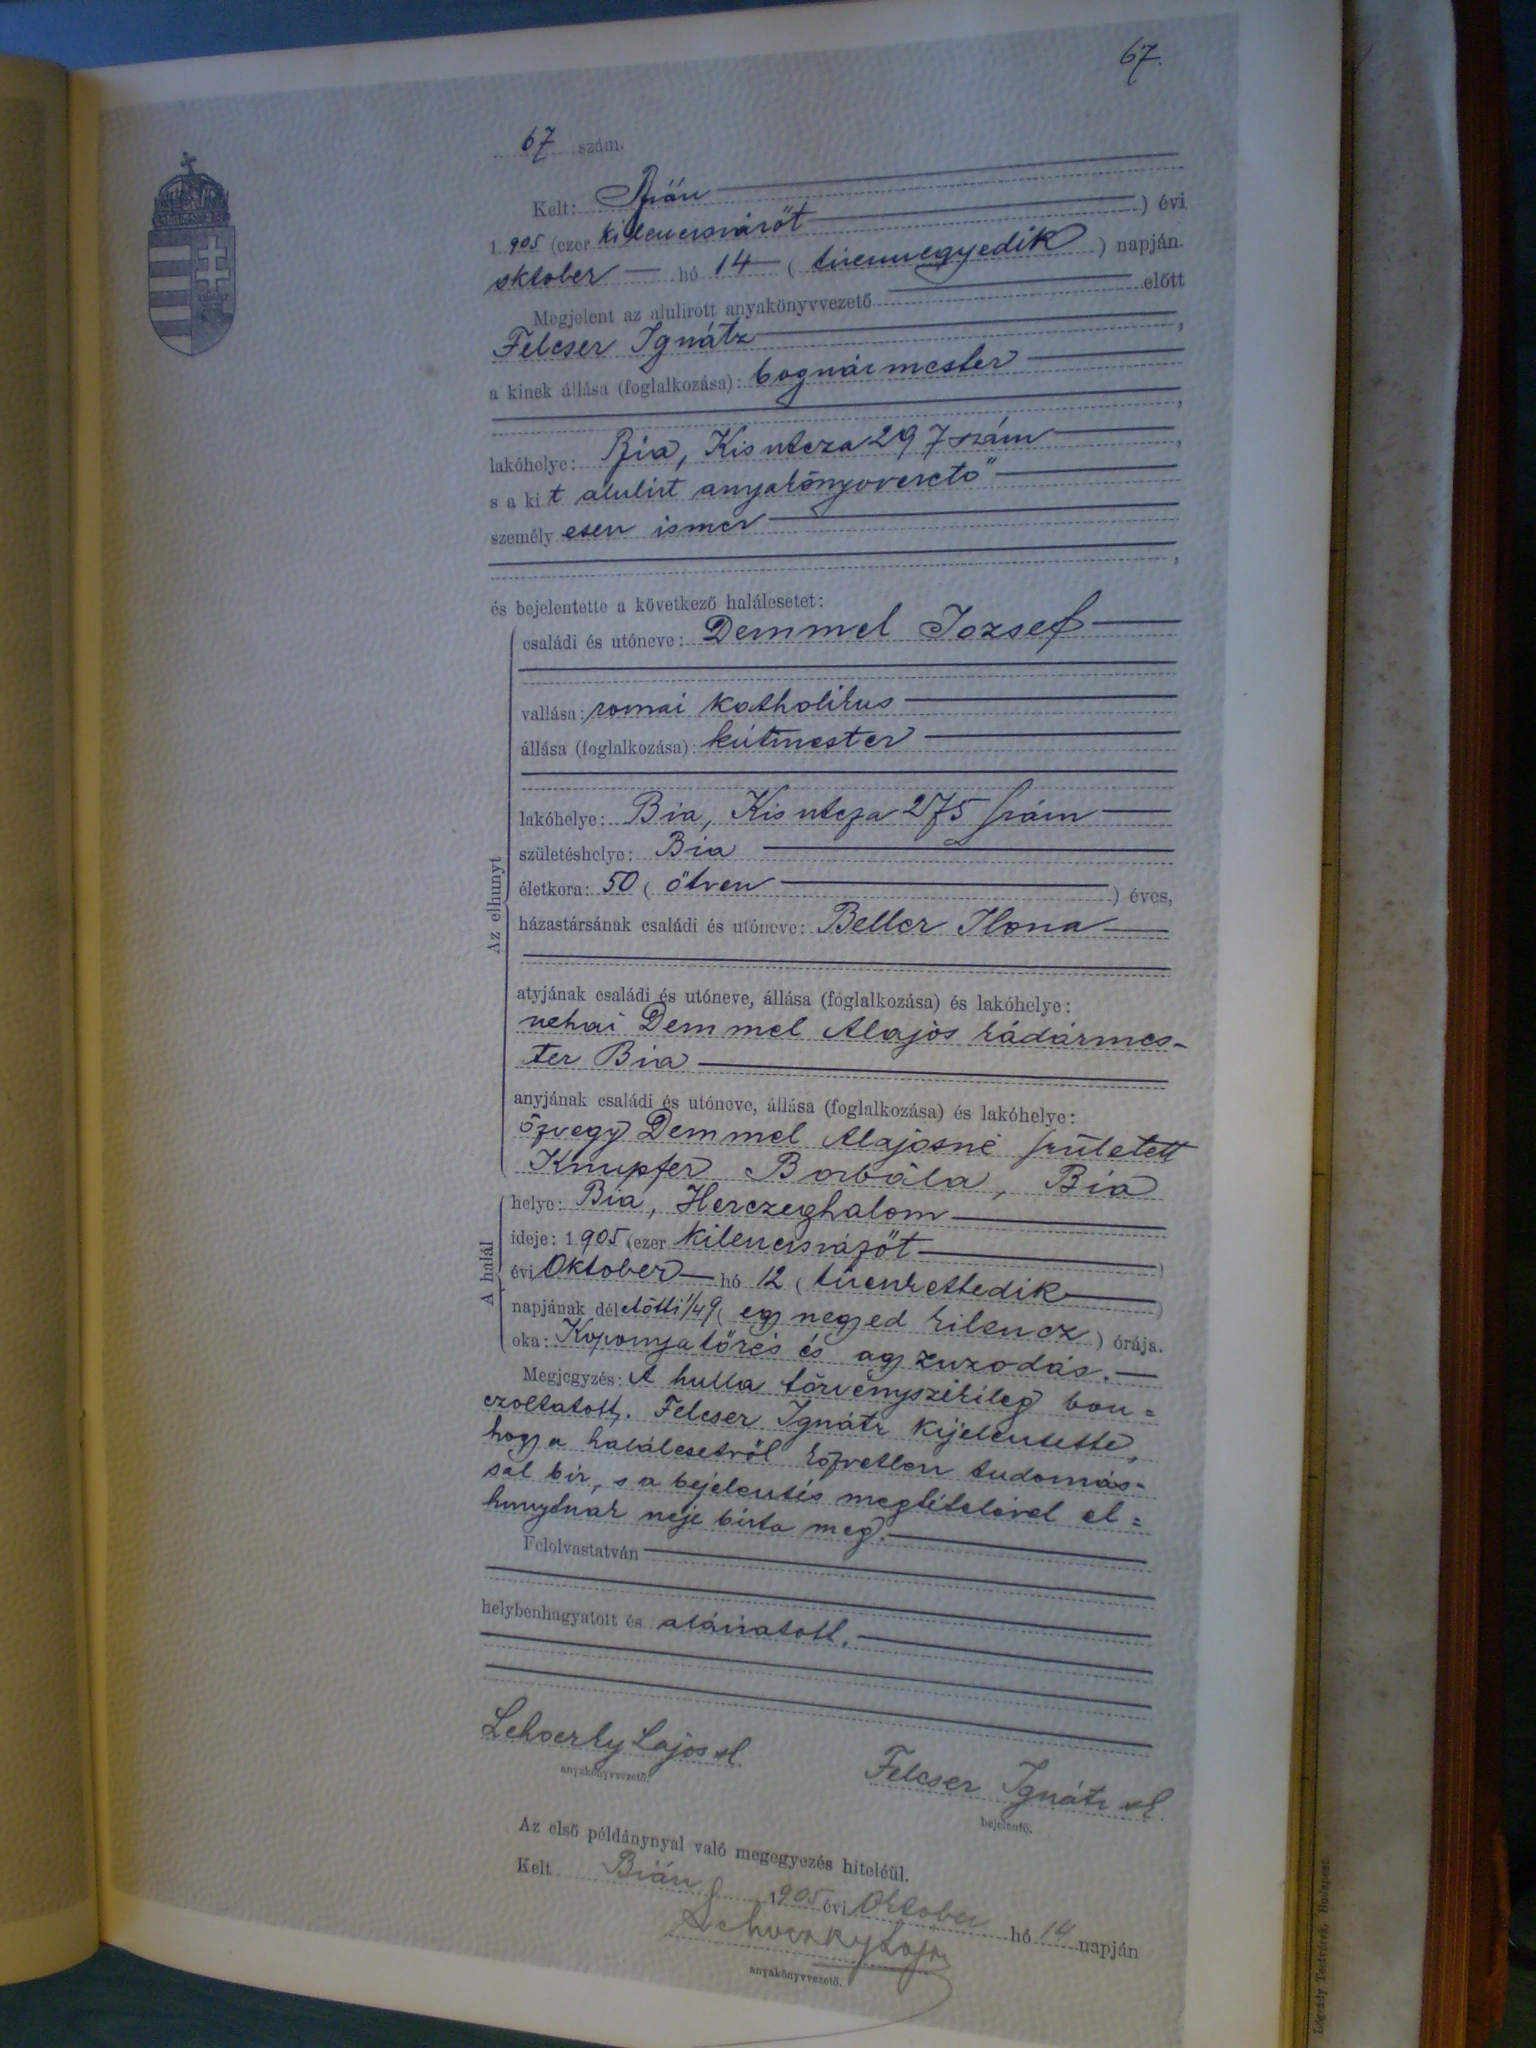 67.
67 szám.
Kelt: Bián
1 905 (ezer kilenczszázöt ) évi
oktober hó 14 ( tizennegyedik ) napján.
Megjelent az alulirott anyakönyvvezető előtt
Felcser Ignátz ,
a kinek állása (foglalkozása): bognármester
,
lakóhelye: Bia, Kis utcza 297 szám ,
s a kit alulirt anyakönyvvezető
személy esen ismer
,
és bejelentette a következő halálesetet:
Az elhunyt
családi és utóneve: Demmel Jozsef
vallása: romai katholikus
állása (foglalkozása): kútmester
lakóhelye: Bia, Kis utcza 275 szám
születéshelye: Bia
életkora: 50 ( ötven ) éves,
házastársának családi és utóneve: Beller Ilona
atyjának családi és utóneve, állása (foglalkozása) és lakóhelye:
nehai Demmel Alajos kádármes-
ter Bia
anyjának családi és utóneve, állása (foglalkozása) és lakóhelye:
özvegy Demmel Alajosné született
Knupfer Borbála, Bia
A halál
helye: Bia, Herczeghalom
ideje: 1 905 (ezer kilenczszázöt )
évi Oktober hó 12 ( tizenkettedik )
napjának délelőtti 1/4 9 ( egy negyed kilencz ) órája.
oka: Koponyatörés és agy zuzodás.
Megjegyzés: A hulla törvényszékileg bon=
czoltatott. Felcser Ignátz kijelentette,
hogy a halálesetről közvetlen tudomás-
sal bir, s a bejelentés megtételével el=
hunytnak neje bizta meg.
Felolvastatván
helybenhagyatott és aláiratott.
Lehoczky Lajos sk.
anyakönyvvezető.
Felcser Ignátz sk.
bejelentő.
Az első példánynyal való megegyezés hiteléül.
Kelt Bián 1905 évi Oktober hó 14 napján
Lehoczky Lajos
anyakönyvvezető.
Légrády Testvérek, Budapest